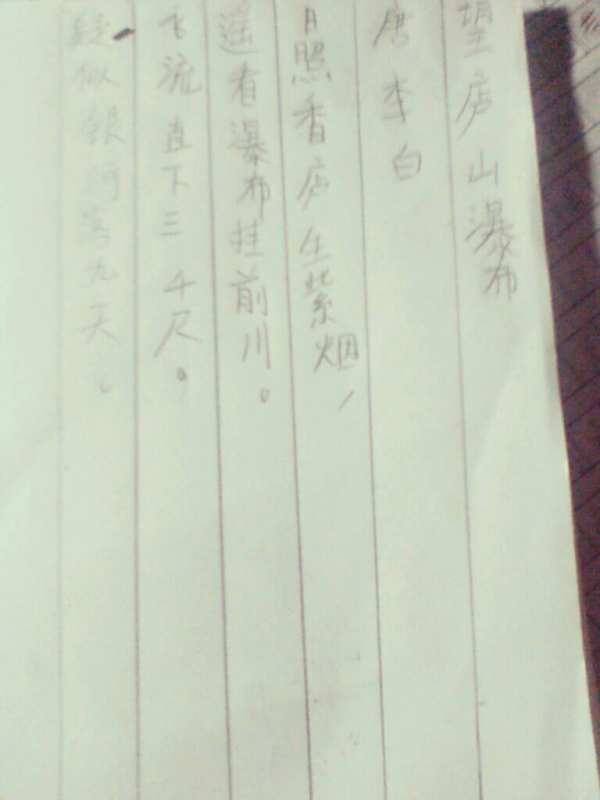 望店山瀑布
唐 李白
日照香店生紫烟,
遥看瀑布挂前川。
飞流直下三千尺。
疑似银河落九天。